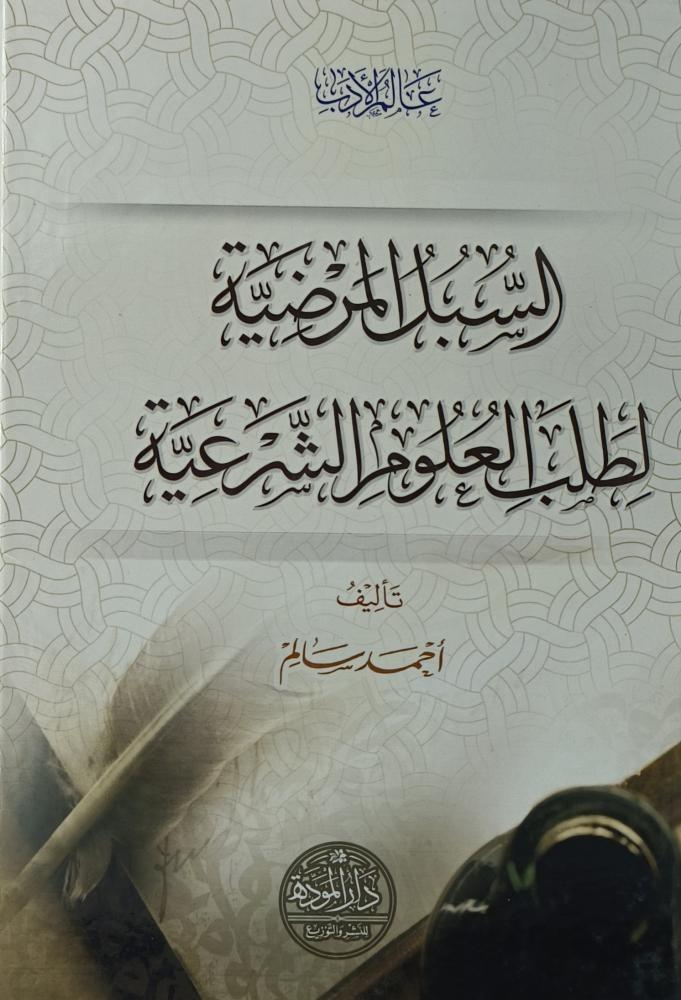 عَالَمُ الأَدَبِ
السُّبُلُ المَرْضِيَّة
لِطَلَبِ العُلُومِ الشَّرْعِيَّة
تَأْلِيفُ
أَحْمَد سَالِم
دَارُ المَوَدَّة
لِلنَّشْرِ وَالتَّوْزِيْع